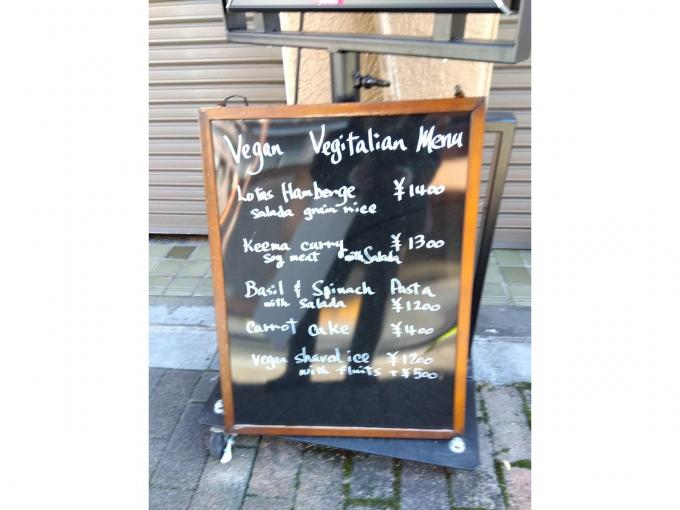 Vegan Vegitalian Menu
Lotas Hamberge ¥1400
Salada grain rice
Keema curry ¥1300
Soy meat with Salada
Basil & Spinach Pasta
with Salada ¥1200
Carrot Cake ¥400
Vegan shaved ice ¥1200
with fluits +¥500